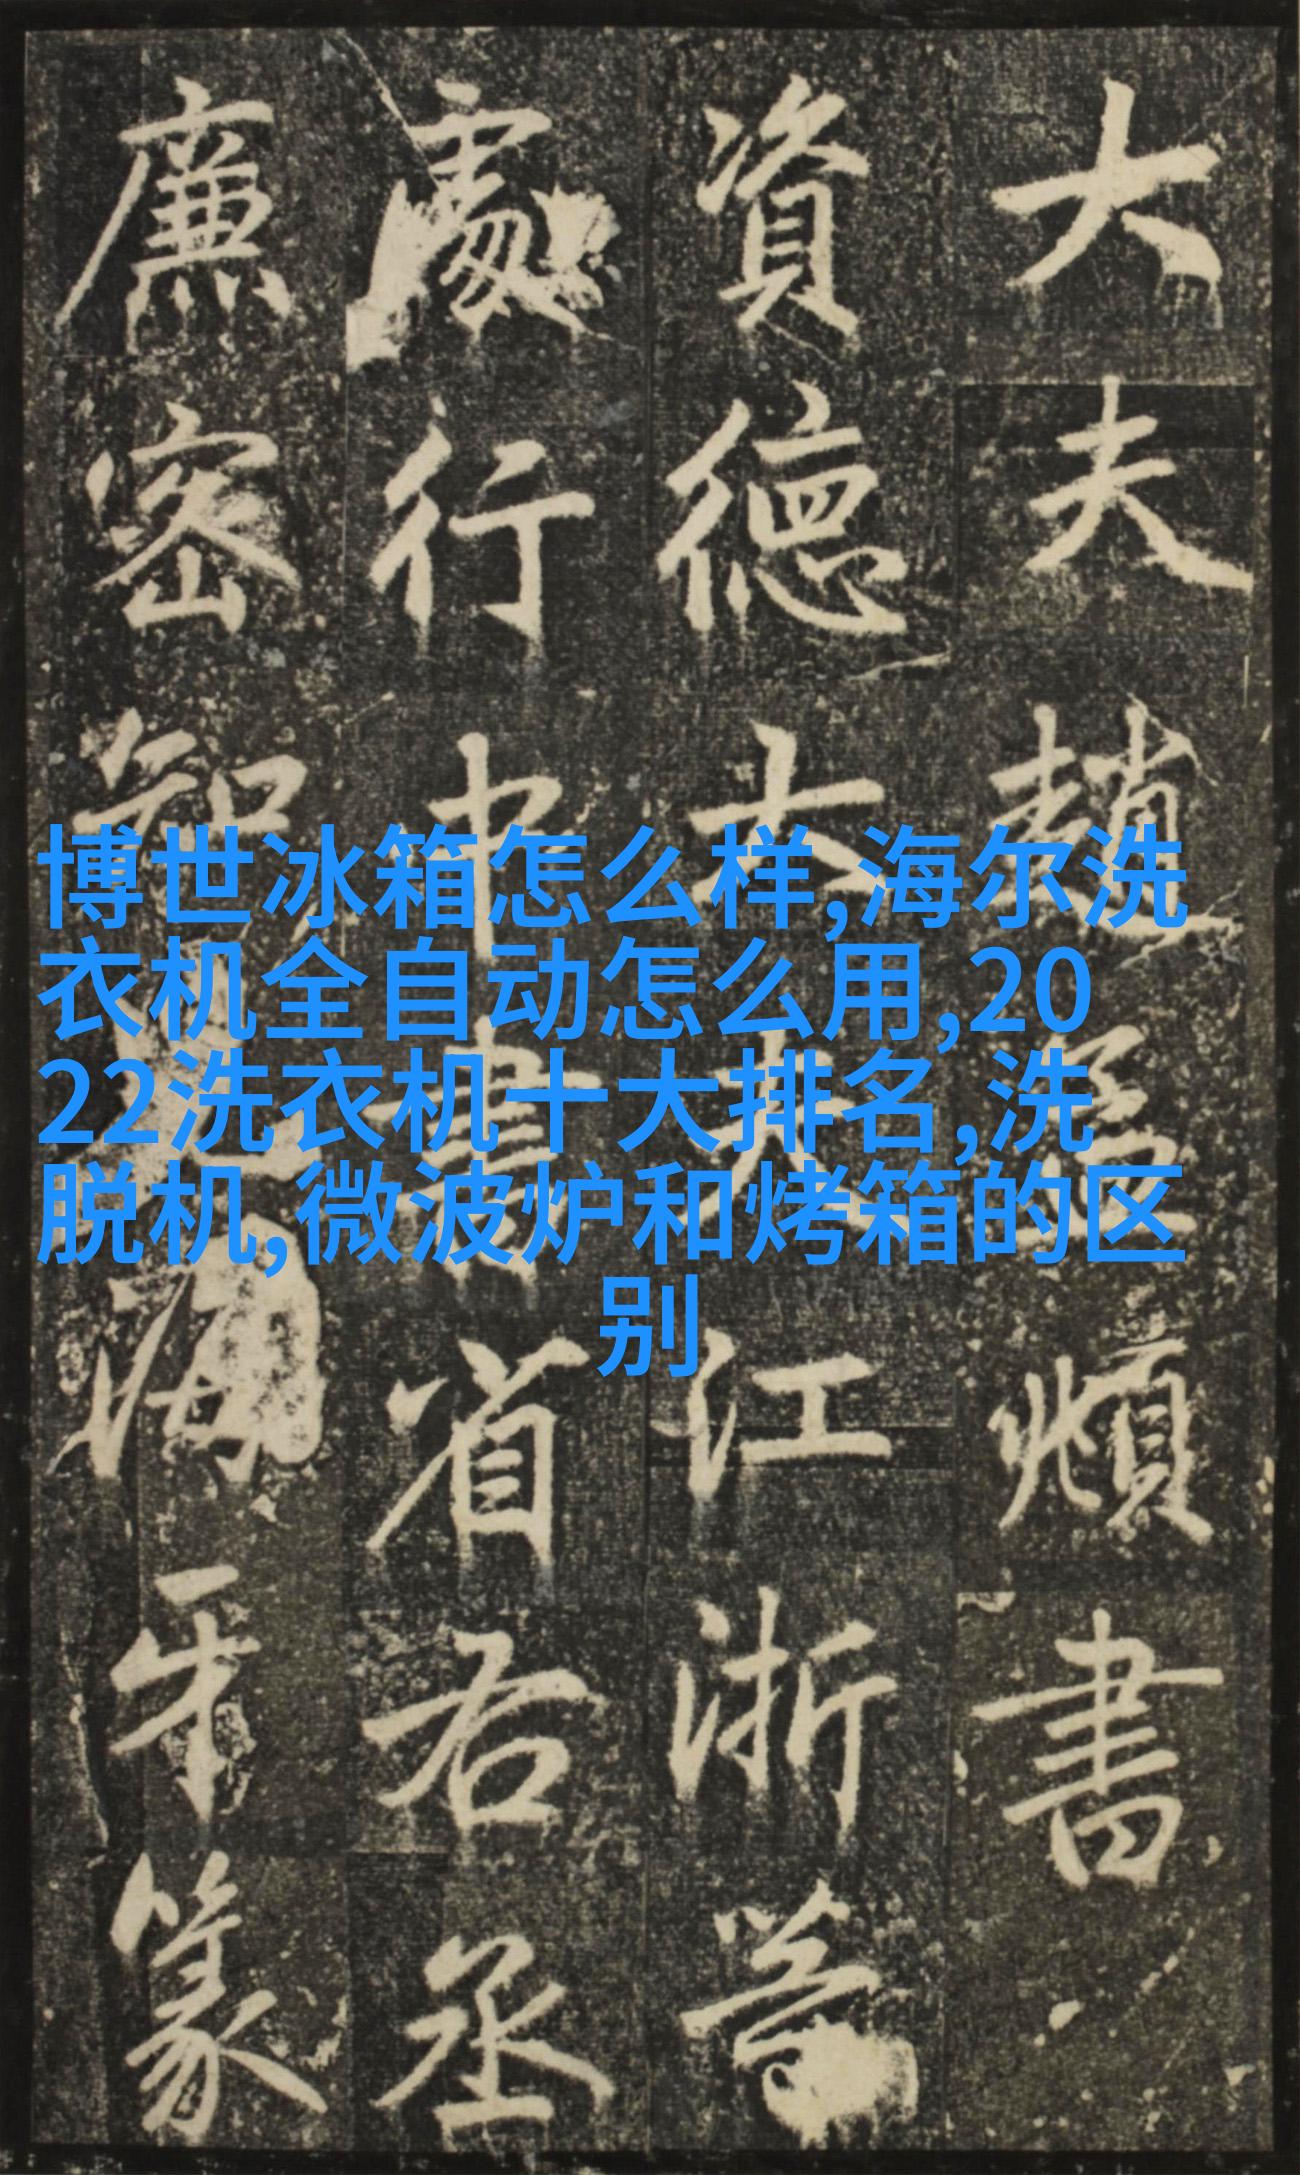 大夫趙孟頫書
資德大夫江浙等
處行中書省右丞
廉密知海牙篆
博世冰箱怎么样,海尔洗
衣机全自动怎么用,20
22洗衣机十大排名,洗
脱机,微波炉和烤箱的区
别